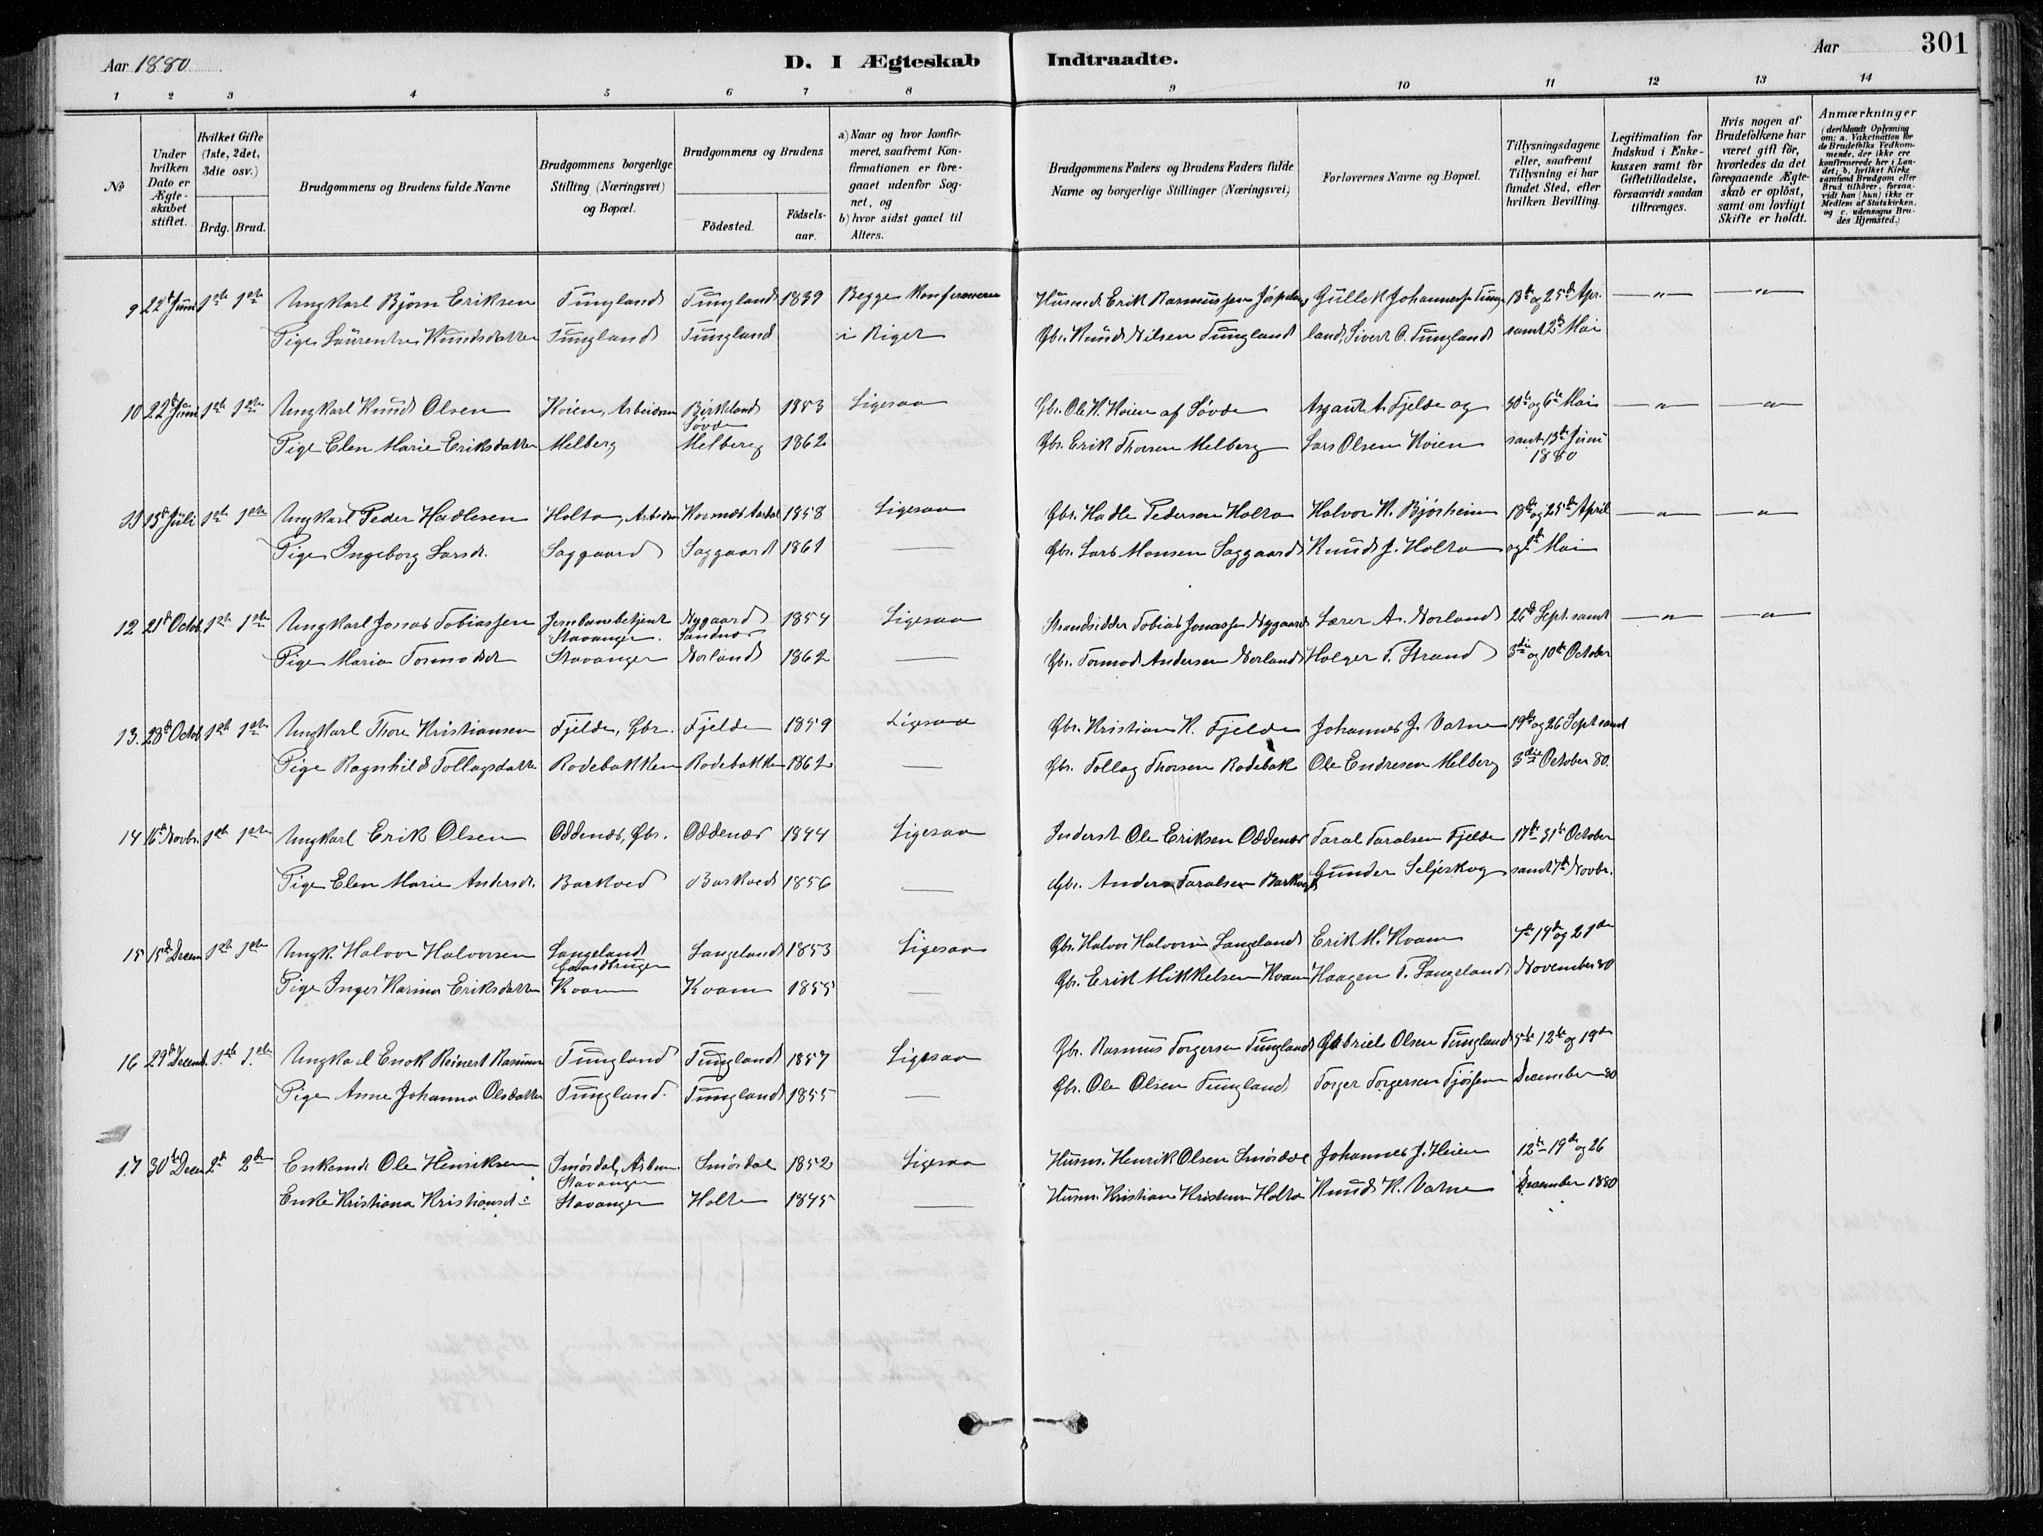 Aar 1880
D. I Ægteskab Indtraadte.
Aar
301
1 2 3 4 5 6 7 8 9 10 11 12 13 14
No
Under hvilken Dato er Ægteskabet stiftet.
Hvilket Gifte (1ste, 2det, 3die osv.)
Brdg. Brud.
Brudgommens og Brudens fulde Navne
Brudgommens borgerlige Stilling (Næringsvei) og Bopæl.
Brudgommens og Brudens
Födested.
Födselsaar.
a) Naar og hvor konfirmeret, saafremt Konfirmationen er foregaaet udenfor Sognet, og
b) hvor sidst gaaet til Alters.
Brudgommens Faders og Brudens Faders fulde Navne og borgerlige Stillinger (Næringsvei)
Forlovernes Navne og Bopæl.
Tillysningsdagene eller, saafremt Tillysning ei har fundet Sted, efter hvilken Bevilling.
Legitimation for Indskud i Enkekassen samt for Giftetilladelse, forsaavidt saadan tiltrænges.
Hvis nogen af Brudefolkene har været gift för, hvorledes da det foregaaende Ægteskab er oplöst, samt om lovligt Skifte er holdt.
Anmærkninger (deriblandt Oplysning om: a. Vakcination for de Brudefolks Vedkommende, der ikke ere konfirmerede her i Landet; b. hvilket Kirkesamfund Brudgom eller Brud tilhörer, forsaavidt han (hun) ikke er Medlem af Statskirken, og c. udensogns Brudes Hjemsted.)
9 22d Juni 1ste 1ste Ungkarl Björn Eriksen Tungland Tungland 1839 Begge Konfirmerede Husmd. Erik Rasmussen Gullik Johannessen Tung 18de og 25de Apr. — " — — " —
Pige Laurentse Knudsdatter Tungland Tungland i Riget Gbr. Knud Nilsen Tungland land, Sivert O. Tungland samt 2den Mai
10 22d Juni 1ste 1ste Ungkarl Knud Olsen Kvien, Arbeidsm Birkeland Sövde 1853 Ligesaa Gbr. Ole K. Hoien af Sövde Asgaut A. Fjelde og 30te og 6te Mai — " — — " —
Pige Elen Marie Eriksdatter Melberg Melberg 1862 Gbr. Erik Thorsen Melberg Lars Olsen Kvien samt 13de Juni 1880
11 15d Juli 1ste 1ste Ungkarl Peder Hadlesen Holta, Arbeidsm 1858 Ligesaa Gbr. Hadle Pedersen Holta Halvor K. Björheim 18de og 25de April — " — — " —
Pige Ingeborg Larsd. Saggaard Saggaard 1861 — Gbr. Lars Monsen Saggaard Knud J. Holta og 2d Mai
12 21d Octob. 1ste 1ste Ungkarl Jonas Tobiassen Jernbanebetjent Stavanger. Nygaard Sandnæs 1854 Ligesaa Strandsidder Tobias Jonassen Nygaard Lærer A. Norland 26de Sept. samt — " — — " —
Pige Maria Tormodsd. Stavanger Norland 1862 — Gbr. Tormod Andersen Norland Holger T. Strand 3die og 10de October
13. 28d Octob. 1ste 1ste Ungkarl Thore Kristiansen Fjelde, Gbr. Fjelde 1859 Ligesaa Gbr. Kristian K. Fjelde Johannes J. Vatne 19de og 26 Sept samt
Pige Ragnhild Tollagsdatter Rodebakken Rodebakken 1862 — Gbr. Tollag Thorsen Rodebak Ole Endresen Melberg 3die October 80.
14 16d Novbr. 1ste 1ste Ungkarl Erik Olsen Oddenæs, Gbr. Oddenæs 1844 Ligesaa Inderst Ole Eriksen Oddenæs Taral Taralsen Fjelde 17de 31te October
Pige Elen Marie Andersd. Barkved Barkved 1856 — Gbr. Anders Taralsen Barkved Gunder Seljeskog samt 7de Novbr.
15 15d Decem 1ste 1ste Ungk. Halvor Halvorsen Langeland Gaardbruger Langeland 1853 Ligesaa Gbr. Halvor Halvorsen Langeland Erik M. Kvam 7de 14de og 21de
Pige Inger Karina Eriksdatter Kvam Kvam 1855 — Gbr. Erik Mikkelsen Kvam Haagen T. Langeland November 80
16 29d Decemb. 1ste 1ste Ungkarl Enok Reinert Rasmussen Tungland Tungland 1857 Ligesaa Gbr. Rasmus Torgersen Tungland Gabriel Olsen Tungland 5te 12te og 19de
Pige Anne Johanna Olsdatter Tungland. Tungland 1855 — Gbr. Ole Olsen Tungland Torger Torgersen December 80
17 30te Decem 2d 2den Enkemd. Ole Henriksen Smörsdal, Arbm. Stavanger Smörsdal 1852 Ligesaa Husm. Henrik Olsen Smörsdal Johannes J. Heien 12te 19de og 26
Enke Kristiana Kristiansd. Stavanger Holta 1845 — Husm. Kristian Kristensen Holta Knud K. Vatne December 1880